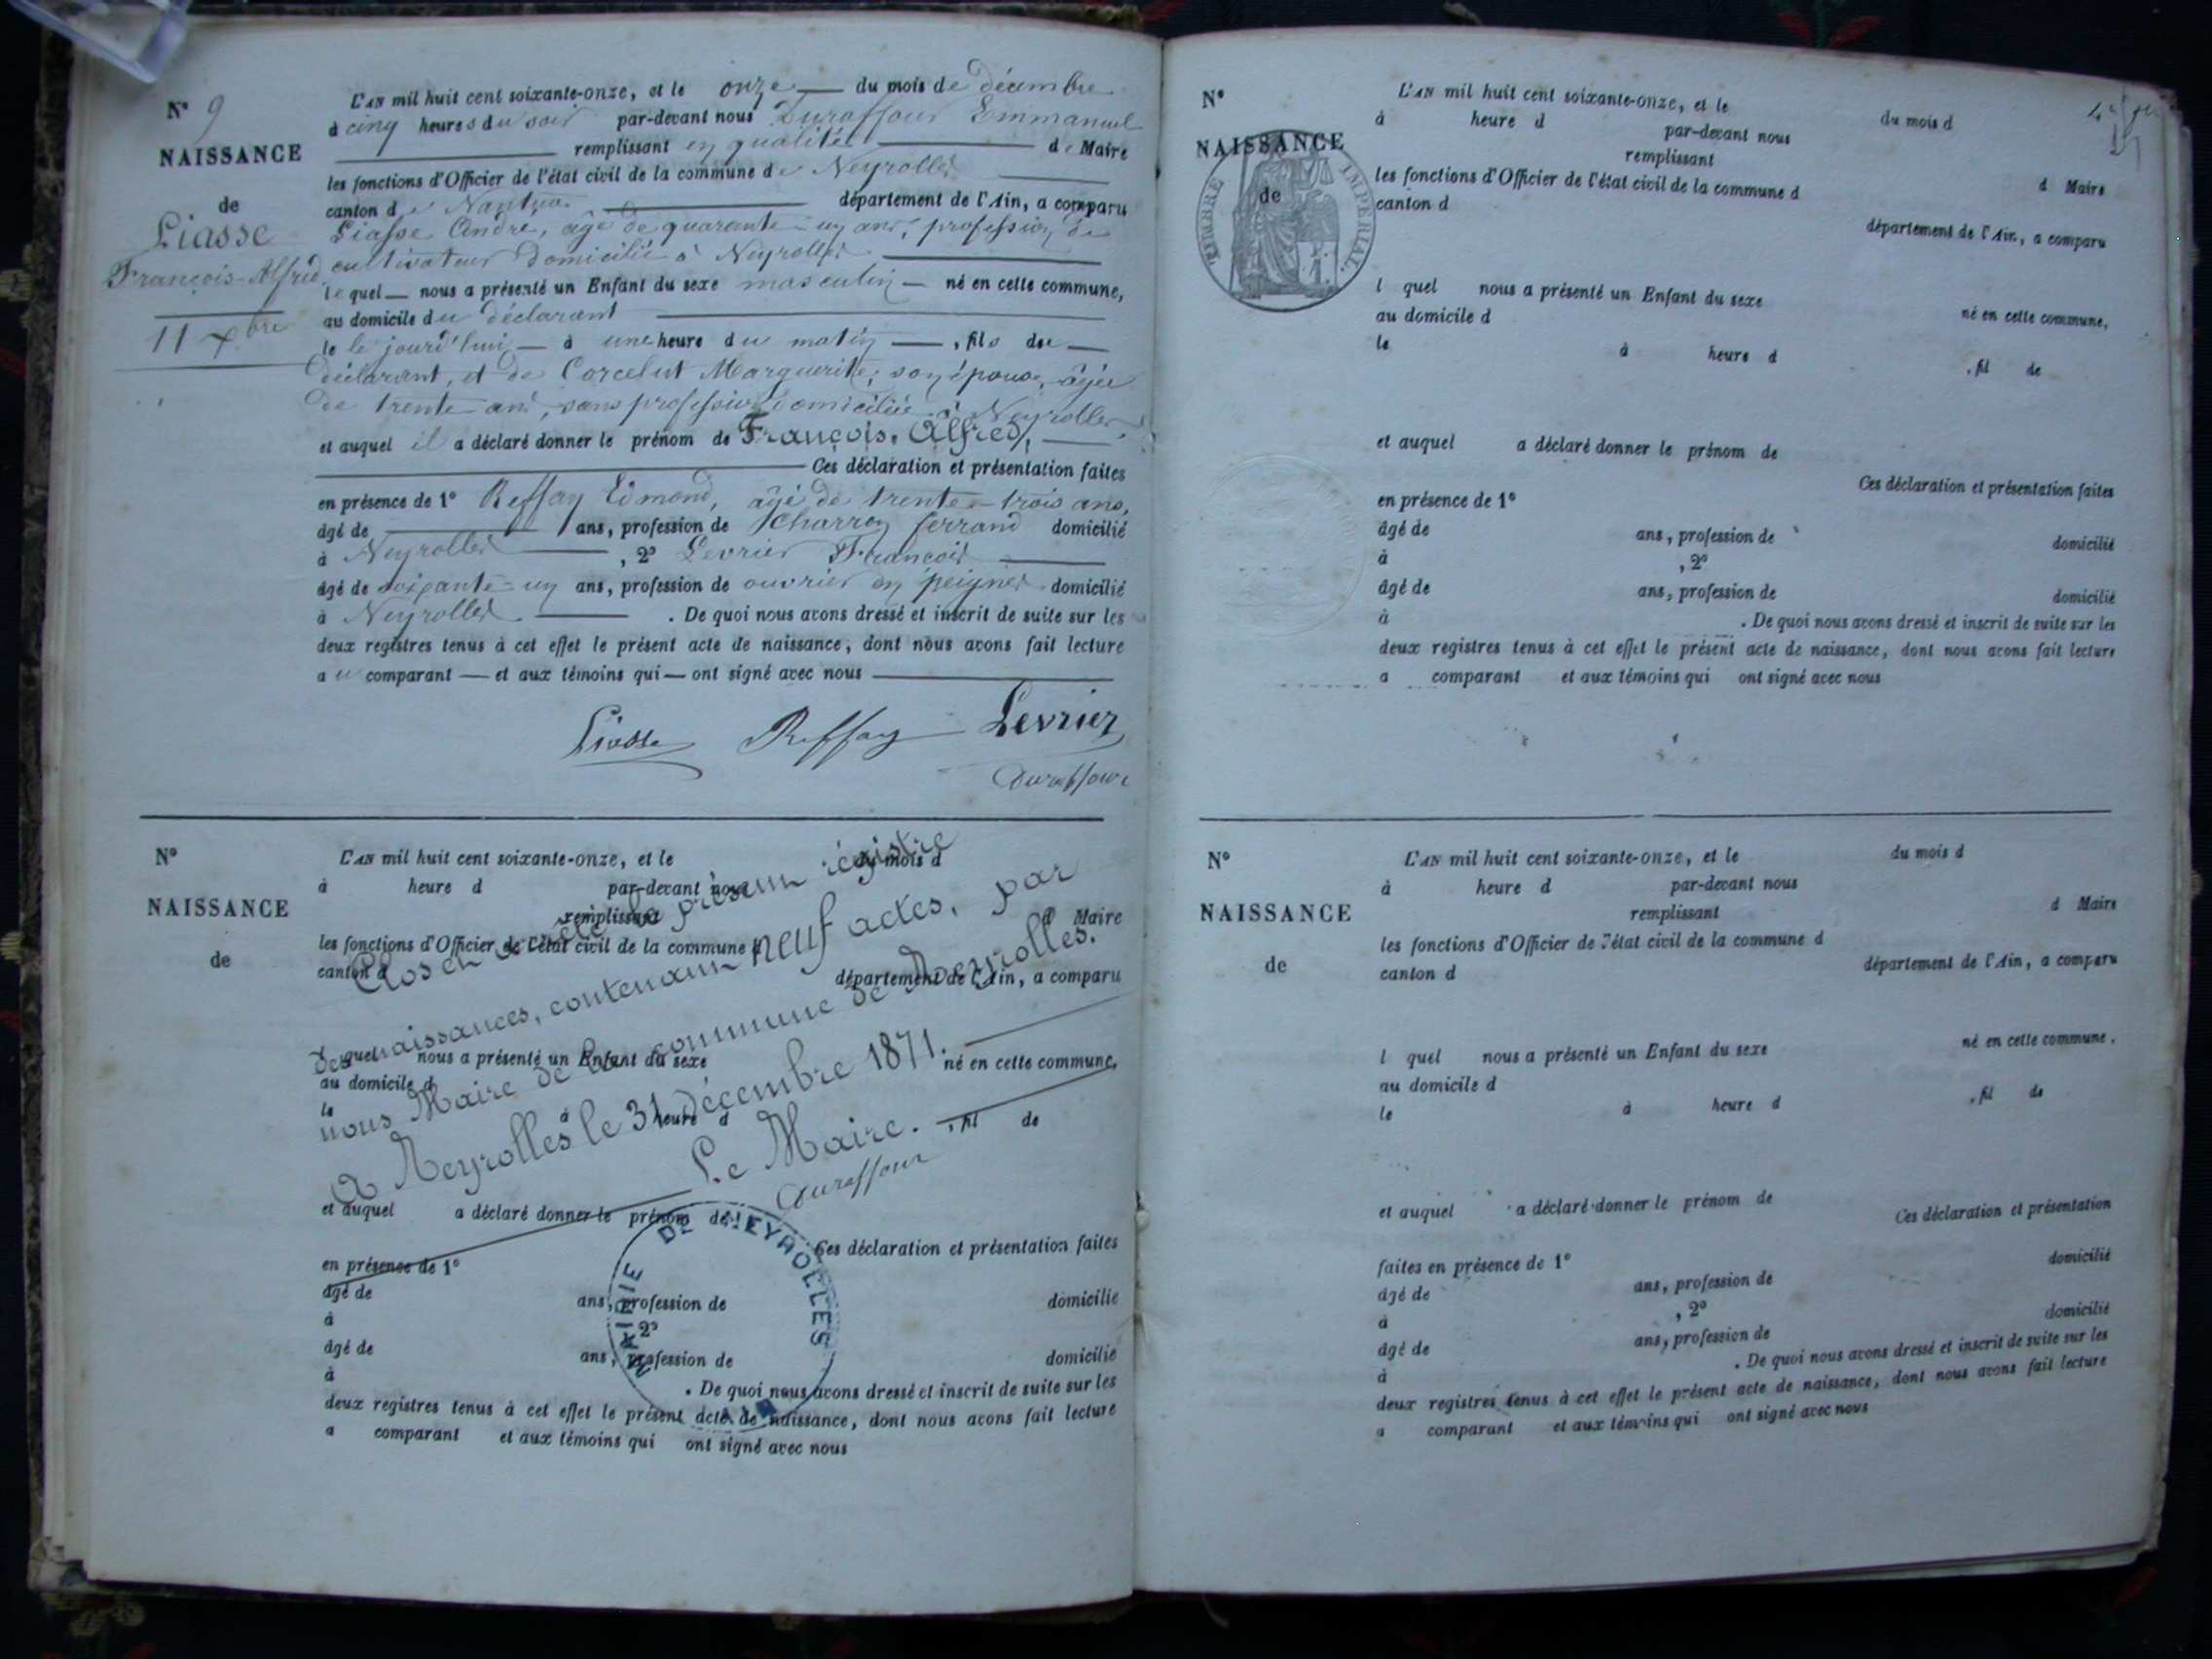 N° 9
NAISSANCE
de
Liasse
François-Alfred
11 xbre
L'AN mil huit cent soixante-onze, et le onze du mois de décembre
à cinq heures du soir par-devant nous Duraffour Emmanuel
remplissant en qualité de Maire
les fonctions d'Officier de l'état civil de la commune de Neyrolles
canton de Nantua département de l'Ain, a comparu
Liasse André, âgé de quarante-un ans, profession de
cultivateur domicilié à Neyrolles
lequel nous a présenté un Enfant du sexe masculin né en cette commune,
au domicile du déclarant
le le jourd'hui à une heure du matin, fils du
déclarant, et de Corcelut Marguerite, son épouse, âgée
de trente ans, sans profession domiciliée à Neyrolles,
et auquel il a déclaré donner le prénom de François, Alfred,
Ces déclaration et présentation faites
en présence de 1° Reffay Edmond, âgé de trente-trois ans,
âgé de ans, profession de charron ferrand domicilié
à Neyrolles, 2° Levrier François
âgé de soixante-un ans, profession de ouvrier en peignes domicilié
à Neyrolles. De quoi nous avons dressé et inscrit de suite sur les
deux registres tenus à cet effet le présent acte de naissance, dont nous avons fait lecture
au comparant et aux témoins qui ont signé avec nous
Liasse Reffay Levrier
Duraffour
N°
NAISSANCE
de
L'AN mil huit cent soixante-onze, et le du mois d
à heure d par-devant nous
remplissant d Maire
les fonctions d'Officier de l'état civil de la commune d
canton d département de l'Ain, a comparu
l quel nous a présenté un Enfant du sexe né en cette commune,
au domicile d
le à heure d , fil de
et auquel a déclaré donner le prénom de
Ces déclaration et présentation faites
en présence de 1°
âgé de ans, profession de domicilié
à , 2°
âgé de ans, profession de domicilié
à . De quoi nous avons dressé et inscrit de suite sur les
deux registres tenus à cet effet le présent acte de naissance, dont nous avons fait lecture
a comparant et aux témoins qui ont signé avec nous
Clos et arrêté le présent régistre
des naissances, contenant neuf actes, par
nous Maire de la commune de Neyrolles.
A Neyrolles le 31 décembre 1871.
Le Maire.
Duraffour
MAIRIE DE NEYROLLES
N°
NAISSANCE
de
TIMBRE IMPERIAL.
L'AN mil huit cent soixante-onze, et le du mois d
à heure d par-devant nous
remplissant d Maire
les fonctions d'Officier de l'état civil de la commune d
canton d département de l'Ain, a comparu
l quel nous a présenté un Enfant du sexe né en cette commune,
au domicile d
le à heure d , fil de
et auquel a déclaré donner le prénom de
Ces déclaration et présentation faites
en présence de 1°
âgé de ans, profession de domicilié
à , 2°
âgé de ans, profession de domicilié
à . De quoi nous avons dressé et inscrit de suite sur les
deux registres tenus à cet effet le présent acte de naissance, dont nous avons fait lecture
a comparant et aux témoins qui ont signé avec nous
N°
NAISSANCE
de
L'AN mil huit cent soixante-onze, et le du mois d
à heure d par-devant nous
remplissant d Maire
les fonctions d'Officier de l'état civil de la commune d
canton d département de l'Ain, a comparu
l quel nous a présenté un Enfant du sexe né en cette commune,
au domicile d
le à heure d , fil de
et auquel a déclaré donner le prénom de
Ces déclaration et présentation
faites en présence de 1° domicilié
âgé de ans, profession de
à , 2° domicilié
âgé de ans, profession de
à . De quoi nous avons dressé et inscrit de suite sur les
deux registres tenus à cet effet le présent acte de naissance, dont nous avons fait lecture
a comparant et aux témoins qui ont signé avec nous